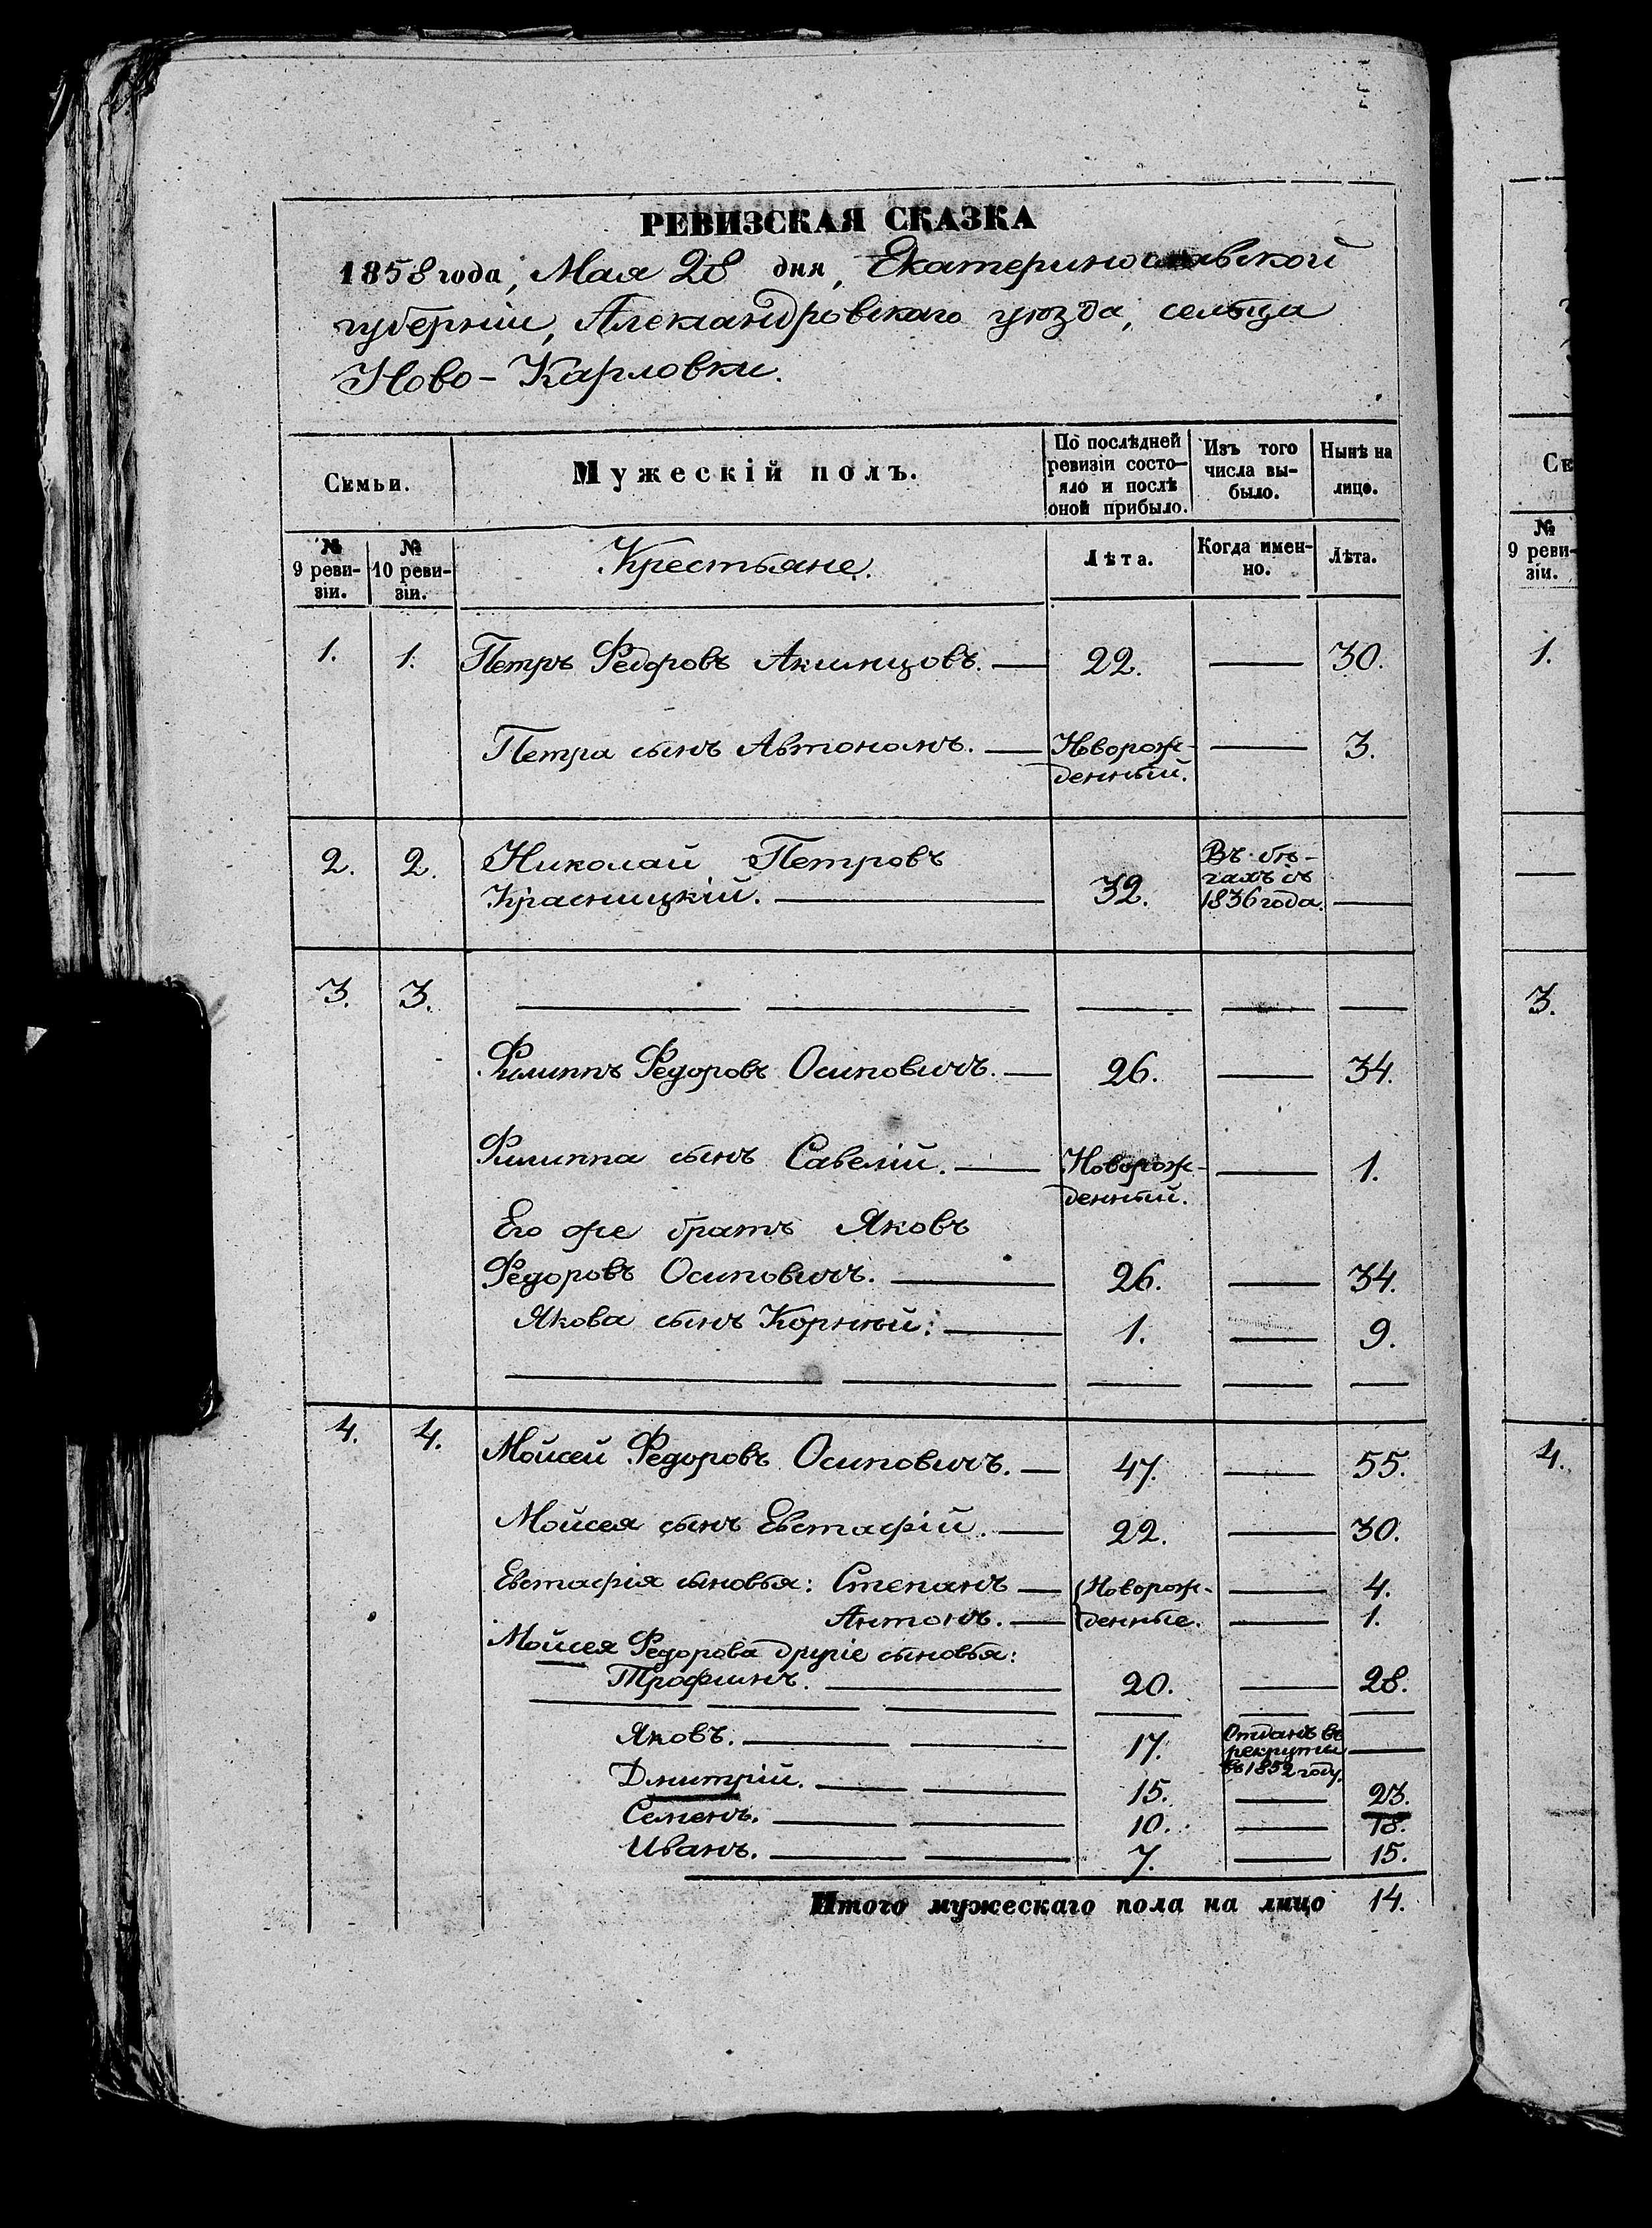 РЕВИЗСКАЯ СКАЗКА
1858 года, Мая 28 дня, Екатеринославской
губернiи, Александровскаго уѣзда, сельца
Ново-Карловки.
Семьи.
Мужескiй полъ.
По послѣдней
ревизiи состо-
яло и послѣ
оной прибыло.
Изъ того
числа вы-
было.
Нынѣ на
лицо.
№
9 реви-
зiи.
№
10 реви-
зiи.
Крестьяне.
Лѣта.
Когда имен-
но.
Лѣта.
1. 1. Петръ Федоровъ Акимцовъ. — 22. — 30.
Петра сынъ Автономъ. — Новорож- — 3.
денный.
2. 2. Николай Петровъ
Красницкiй. — 32. — 
Въ бѣ-
гахъ съ
1836 года.
3. 3. — — — — —
Филиппъ Федоровъ Осиповичъ. — 26. — 34.
Филиппа сынъ Савелiй. — Новорож- — 1.
денный.
Его же братъ Яковъ
Федоровъ Осиповичъ. — 26. — 34.
Якова сынъ Корнiй: — 1. — 9.
— — — — —
4. 4. Мойсей Федоровъ Осиповичъ. — 47. — 55.
Мойсея сынъ Евстафiй. — 22. — 30.
Евстафiя сыновья: Степанъ — {Новорож- — 4.
Антонъ. — {денные. — 1.
Мойсея Федорова другiе сыновья:
Трофимъ. — 20. — 28.
— — — — — —
Яковъ. — — 17. —
Отданъ въ
рекруты
въ 1852 году.
Дмитрiй. — — 15. — 23.
Семенъ. — — 10. — 18.
Иванъ. — — 7. — 15.
Итого мужескаго пола на лицо 14.
Се
№
9 реви-
зiи.
1.
3.
4.